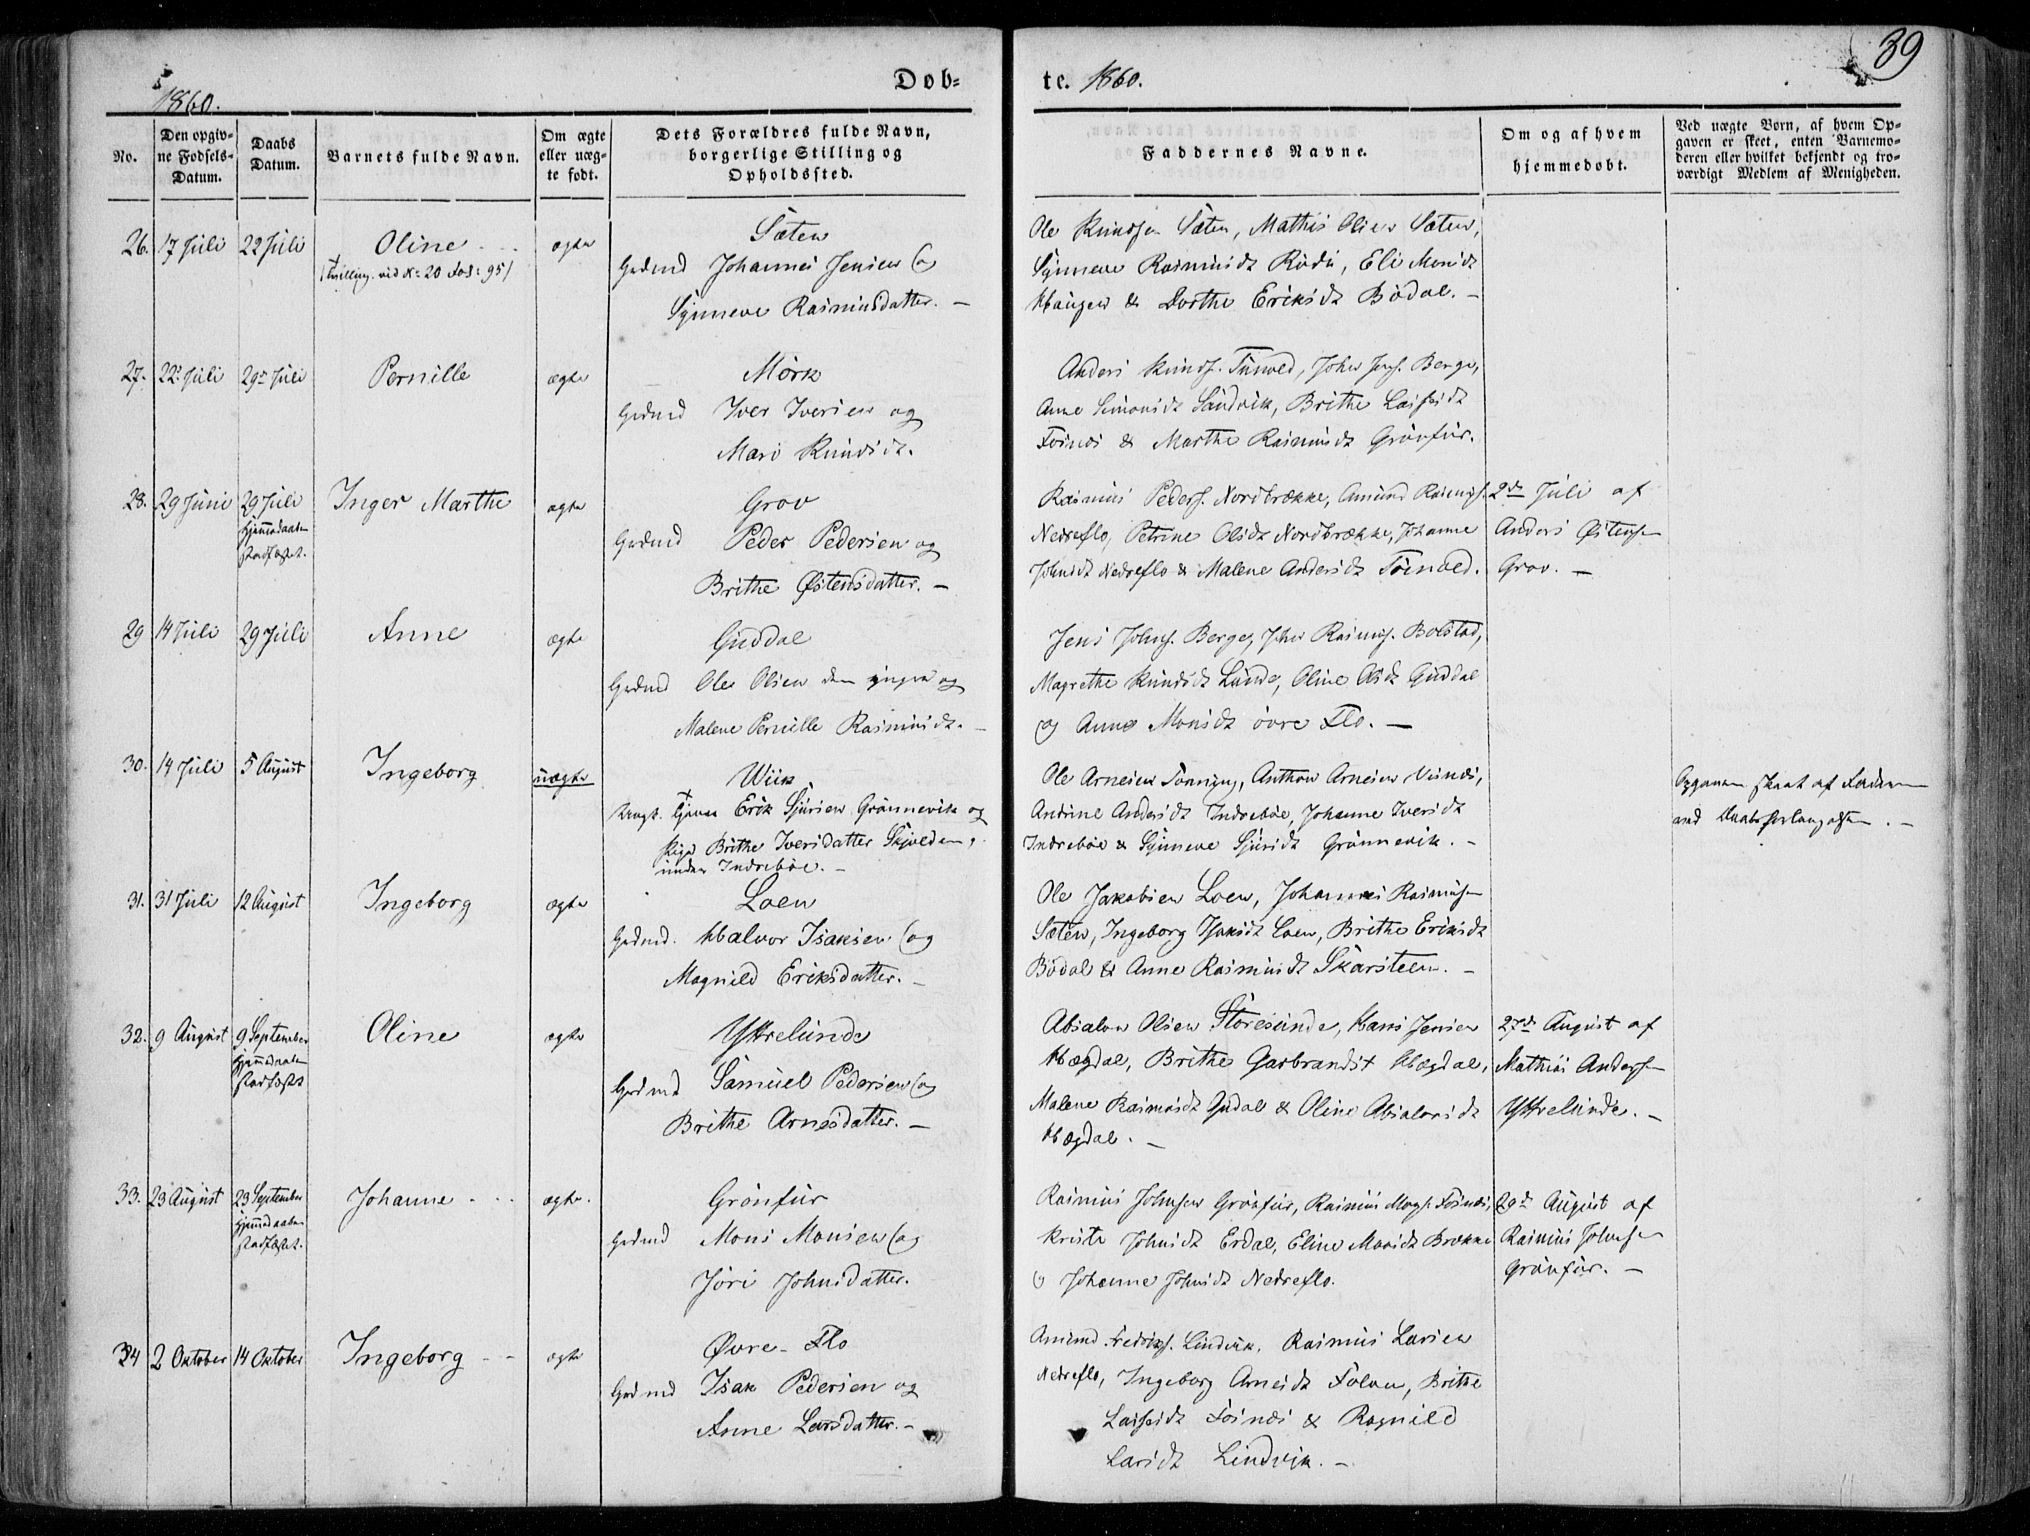 39
Döb=
te. 1860.
1860.
No.
Den opgiv=
ne Fødsels=
Datum.
Daabs
Datum.
Barnets fulde Navn.
Om ægte
eller uæg=
te født.
Dets Forældres fulde Navn,
borgerlige Stilling og
Opholdssted.
Faddernes Navne.
Om og af hvem
hjemmedøbt.
Ved uægte Børn, af hvem Op=
gaven er skeet, enten Barnemo=
deren eller hvilket bekjendt og tro=
værdigt Medlem af Menigheden.
26. 17 Juli 22 Juli Oline ægte
Sæten
Grdmd Johannes Jensen og
Synneve Rasmusdatter. –
Ole Knudsen Sæten, Mathis Olsen Sæten,
Synneve Rasmusdt Rødi, Eli Monsdt
Haugen & Dorthe Eriksdt Bødal. –
27. 22. Juli 29 Juli Pernille ægte
Mörk
Grdmd Iver Iversen og
Mari Knudsdt.
Anders Knuds. Tunold, John Jens. Berge,
Anne Simonsdt Sandvik, Brithe
& Marthe Rasmusdt Grönfur.
28. 29 Juni 29 Juli Inger Marthe ægte
hjemmedaaben
stadfæstet.
Grov
Grdmd Peder Pedersen og
Brithe Østensdatter. –
Rasmus Peders. Nordbrække, Amund Rasmuss.
Nedreflo, Petrine Olsdt Nordbrække, Johanne
Johnsdt Nedreflo & Malene Andersdt
2den Juli af
Anders Østensen
Grov. –
29 14 Juli 29 Juli Anne ægte
Guddal
Grdmd Ole Olsen den yngre og
Malene Pernille Rasmusdt. –
Jens Johns. Berge, John Rasmuss. Bolstad,
Magrethe Knudsdt Lunde, Oline Olsdt Guddal
og Anne Monsdt övre Flo. –
30. 14 Juli 5 August Ingeborg uægte
Wiik
Ungk. Erik Sjursen Grönnevik og
Pige Brithe Iversdatter Skjolden,
under Indrebøe. –
Ole Arnesen Tonning, Anthon Arnesen Visnes,
Andrine Andersdt Indrebøe, Johanne Iversdt
Indrebøe & Synneve Sjursdt Grönnevik. –
Opgaven skeet af Faderen
ved Daabsforlangelsen. –
31. 31 Juli 12 August Ingeborg ægte
Loen
Grdmd. Halvor Isaksen og
Magnild Eriksdatter. –
Ole Jakobsen Loen, Johannes Rasmusen
Sæten, Ingeborg Isaksdt Loen, Brithe Eriksdt
Bödal & Anne Rasmusdt Skarsteen. –
32. 9 August 9 September Oline ægte
hjemmedaaben
stadfæstet
Yttrelunde
Grdmd Samuel Pedersen og
Brithe Arnesdatter. –
Absalon Olsen Storesunde, Hans Jensen
Hægdal, Brithe Garbrandsdt Hægdal,
Malene Rasmusdt Gudal & Oline Absalonsdt
Hægdal. –
27de August af
Mathias Andersen
Yttrelunde. –
33. 23 August 23 September Johanne ægte.
hjemmedaaben
stadfæstet.
Grönfur
Grdmd Mons Monsen og
Jöri Johnsdatter.
Rasmus Johnsen Grönfur, Rasmus Mogs.
Kriste Johnsdt Erdal, Eline Monsdt Brække
og Johanne Johnsdt Nedreflo.
29de August af
Rasmus Johnsen
Grönfur. –
34 2 Oktober 14 Oktober Ingeborg ægte
Øvre Flo
Grdmd Isak Pedersen og
Anne Larsdatter. –
Amund Fredriks. Lindvik, Rasmus Larsen
Nedreflo, Ingeborg Arnesdt Folven, Brithe
& Ragnild
Larsdt Lindvik. –